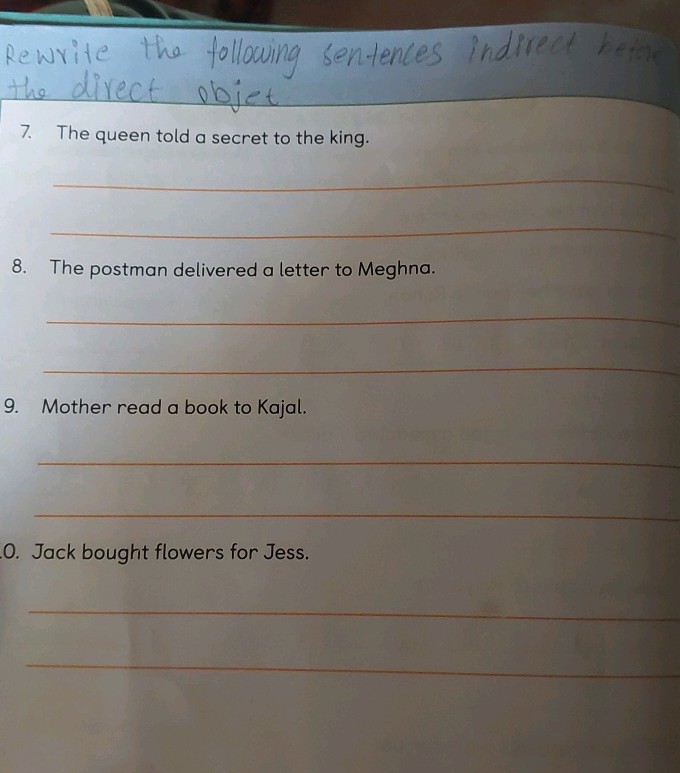 Rewrite the following sentences indirect before
the direct objet
7. The queen told a secret to the king.
8. The postman delivered a letter to Meghna.
9. Mother read a book to Kajal.
0. Jack bought flowers for Jess.